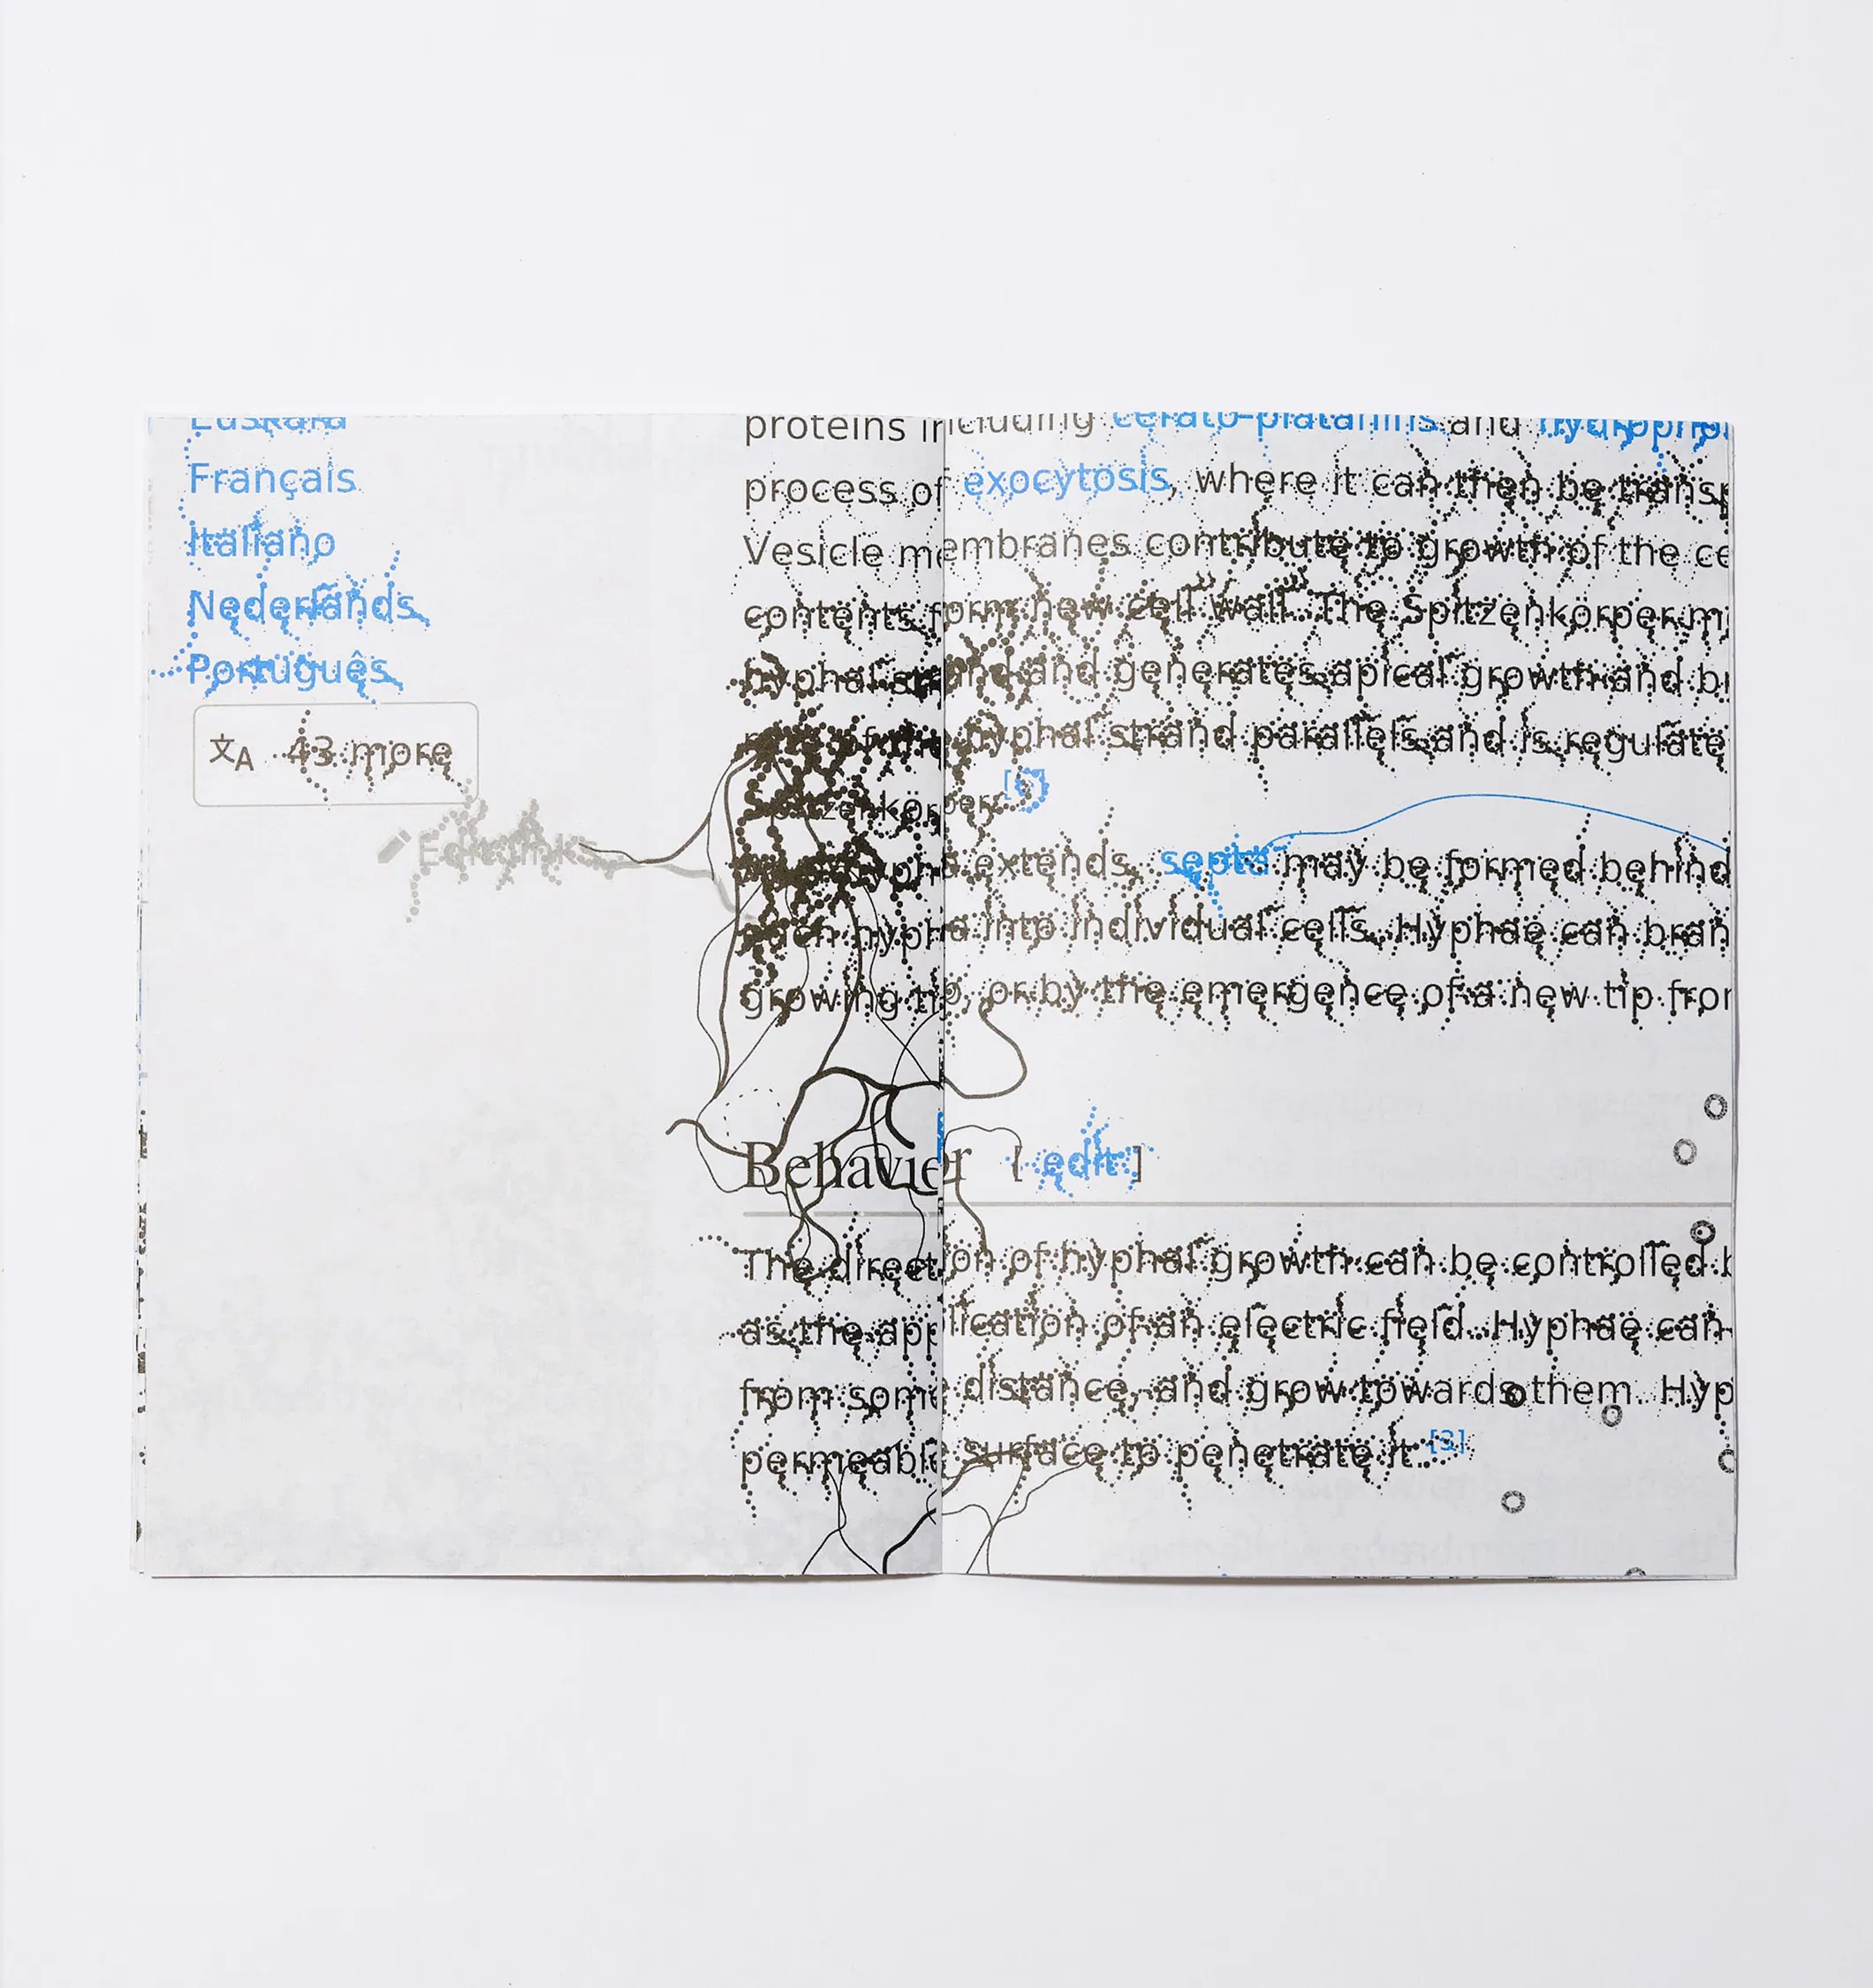 Euskara
Français
Italiano
Nederlands
Português
文A 43 more
Edit links
proteins including cerato-platanins and
process of exocytosis, where it can then be transp
Vesicle membranes contribute to growth of the ce
contents form new cell wall. The Spitzenkörper m
hyphal strand and generates apical growth and br
of the hyphal strand parallels and is regulate
Spitzenkörper.[6]
extends, septa may be formed behind
each hypha into individual cells. Hyphae can bran
growing tip, or by the emergence of a new tip from
Behavior [ edit ]
The direction of hyphal growth can be controlled b
as the application of an electric field. Hyphae can
from some distance, and grow towards them. Hyp
permeable surface to penetrate it.[3]